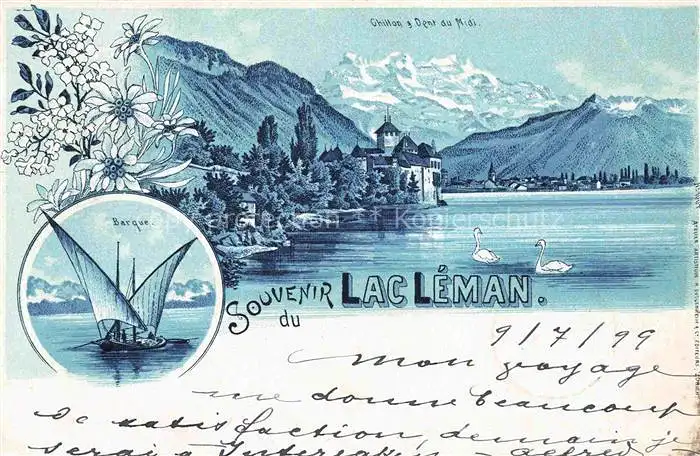 Chillon & Dent du Midi.
Barque.
SOUVENIR du LAC LÉMAN.
9/7/99
Mon voyage
me donne beaucoup
de satisfaction, demain je
serai à Interlaken - Alfred
Kopierschutz